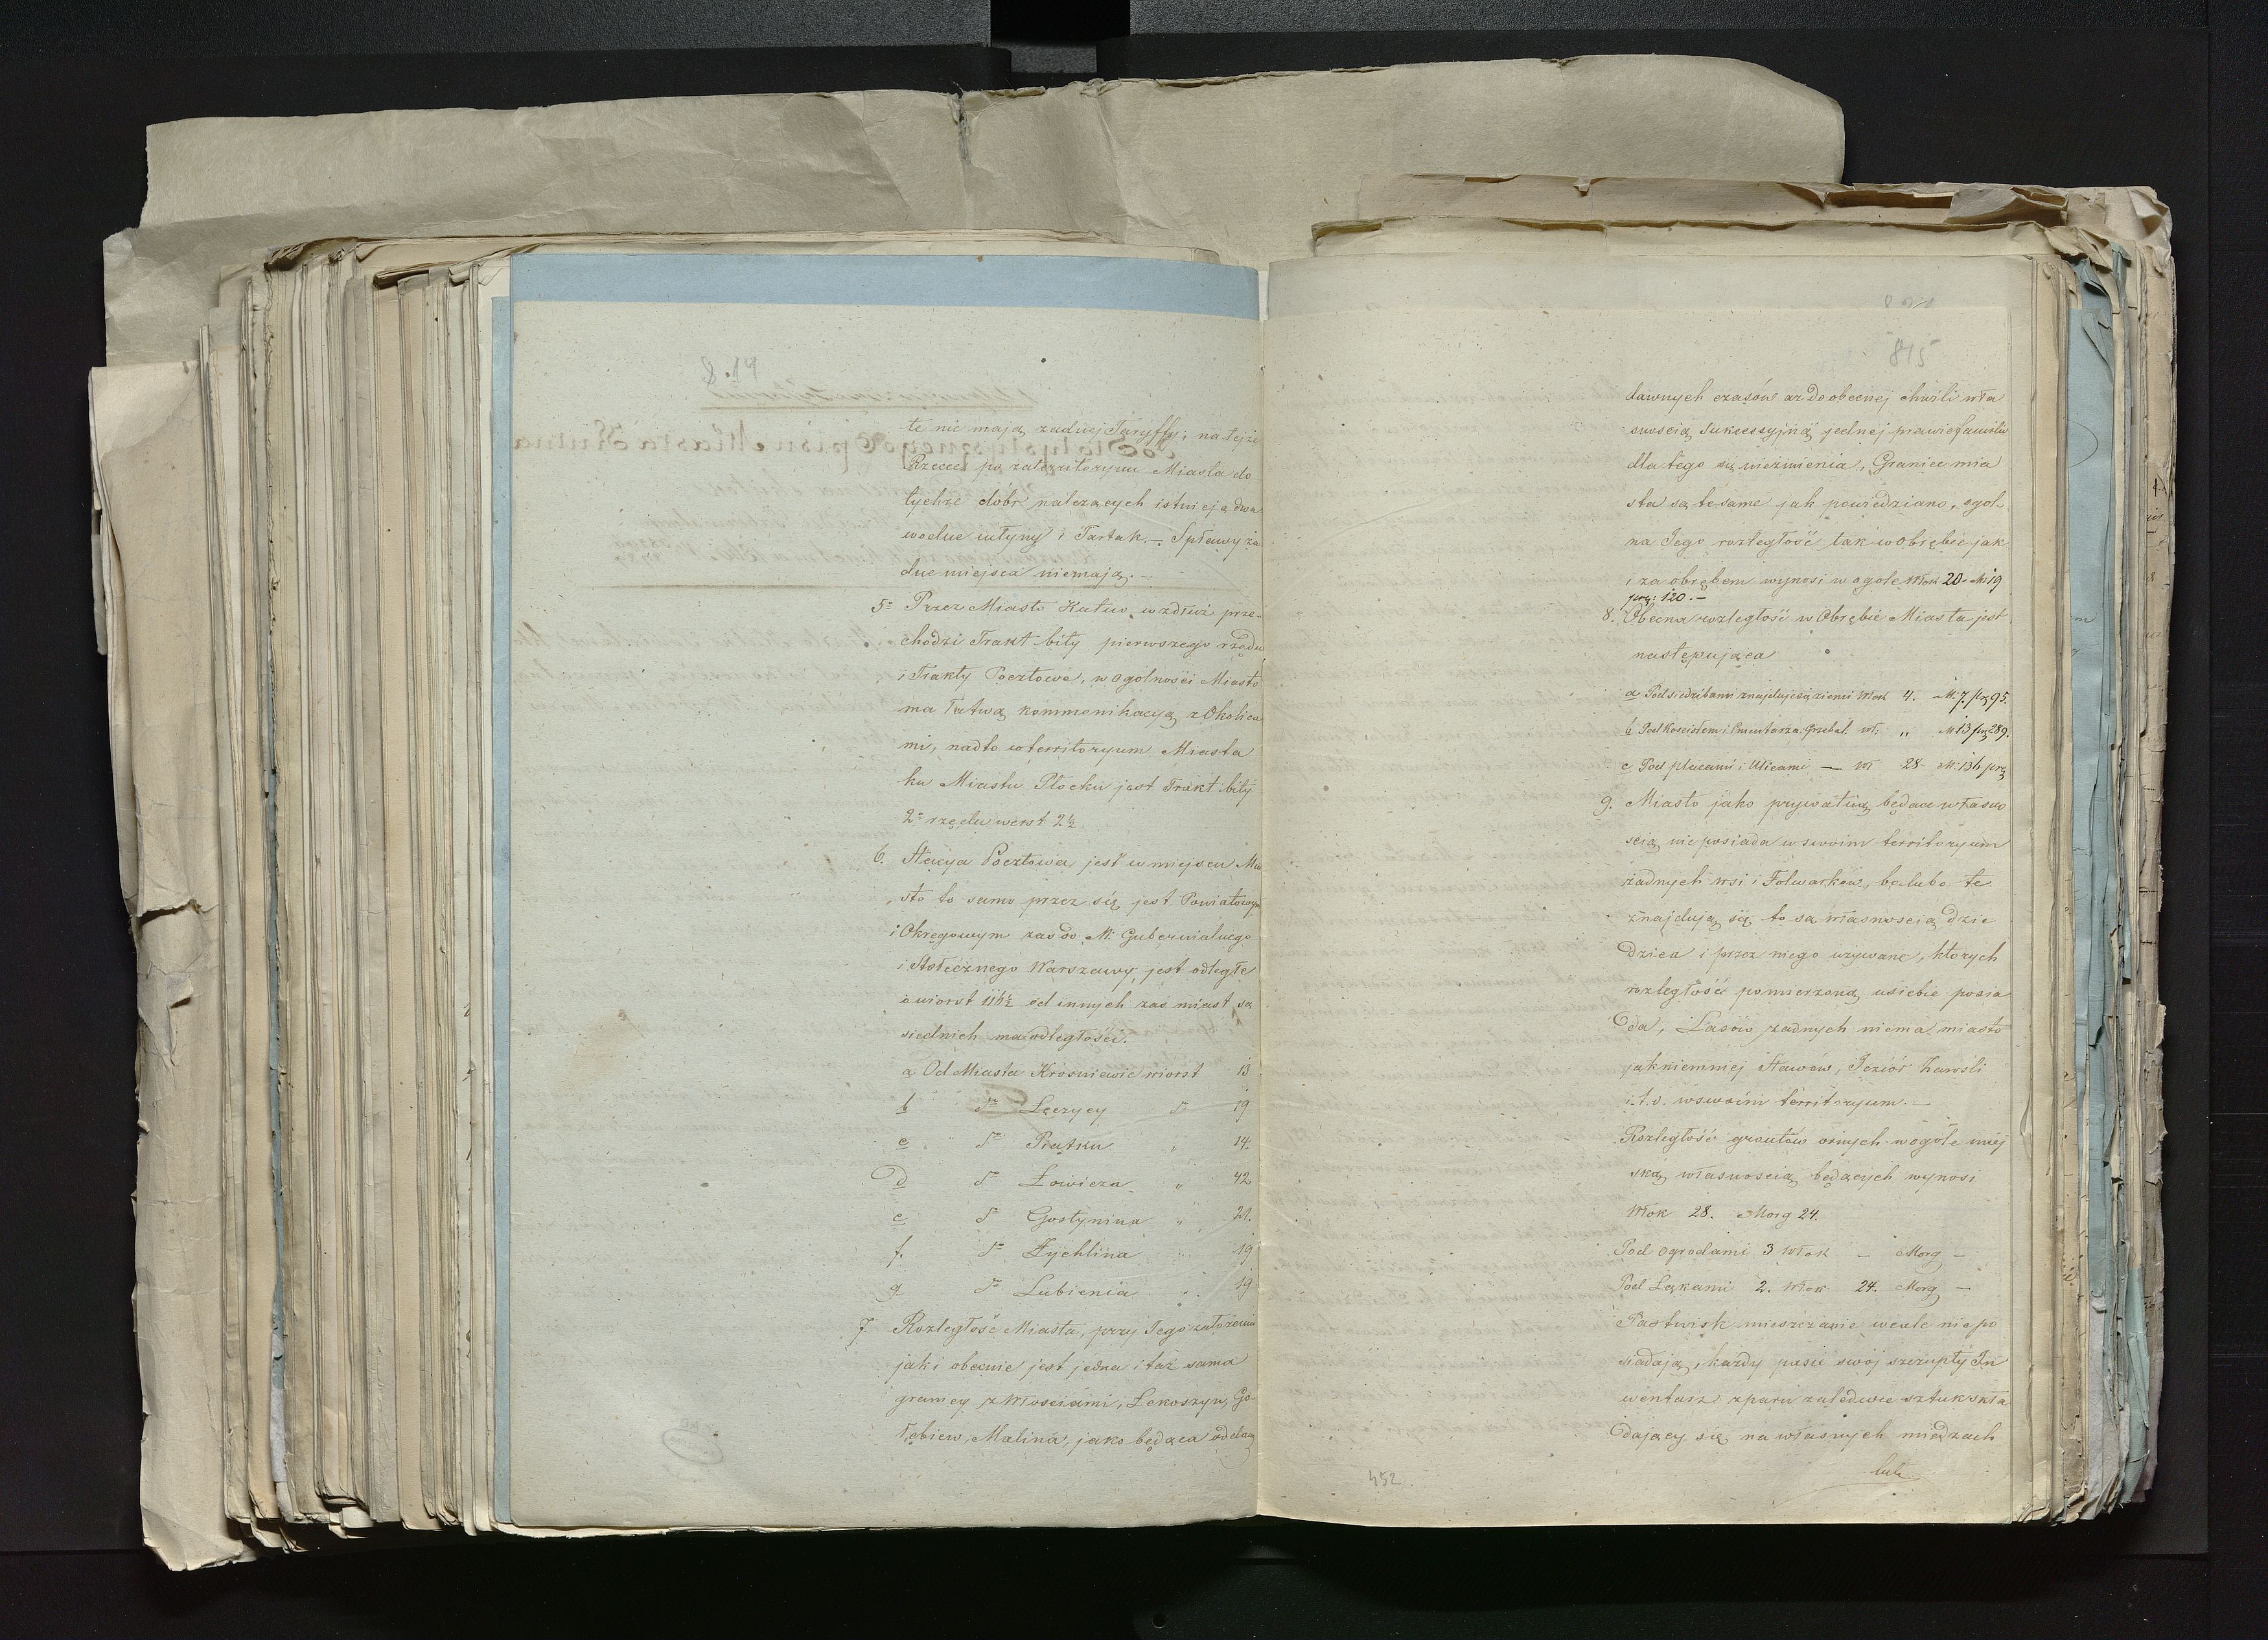 814
te nie mają żadnej Taryffy; na tejże
Rzecce po za territoryum Miasta do
tychże dóbr należących istnieją dwa
wodne młyny i Tartak. — Spławy ża
dne miejsca niemają. —
5= Przez Miasto Kutno wzdłuż prze-
chodzi Trakt bity pierwszego rzędu
i Trakty Pocztowe, w ogólności Miasto
ma łatwą kommonikacyą z Okolica
mi, nadto w territoryum Miasta
ku Miastu Płocku jest Trakt bity
2= rzędu werst 2½
6. Stacya Pocztowa jest w miejscu Mia
sto to samo przez się jest Powiatowym
i Okręgowym zaś do M. Gubernialnego
i Stołecznego Warszawy, jest odległe
o wiorst 116½ od innych zaś miast są
siednich ma odległości.
a Od Miasta Krośniewic wiorst 13
b dº Łęczycy d 19
c dº Piątku " 14.
d dº Łowicza " 42
e dº Gostynina " 21.
f. dº Żychlina " 19
g dº Lubienia " 19
7 Rozległość Miasta, przy Jego założeniu
jak i obecnie jest jedna i taż sama
graniczy z Włościami, Łękoszyn, Go-
łębiew, Malina, jako będąca od da
815
dawnych czasów aż do obecnej chwili wła
snością Sukcessyjną jednej prawie familii
dla tego się niezmienia, Granice mia
sta są te same jak powiedziano, ogól-
na Jego rozległość tak w obrębie jak
i za obrębem wynosi w ogole Włok 20. M 19
prę: 120. —
8. Obecna rozległość w Obrębie Miasta jest
następująca
a Pod siedzibami znajduje się ziemi Włok 4. M: 7. prę 95.
b Pod Kościołem i Cmentarza Grzebal: Wł: " M 13 prę 289.
c Pod placami i Ulicami — Wł 28 M: 136 prę
9. Miasto jako prywatną będące własno
ścią nie posiada w swoim territoryum
żadnych wsi i Folwarków, bo lubo te
znajdują się to są własnością dzie
dzica i przez niego używane, których
rozległość pomierzoną u siebie posia
da, Lasów żadnych niema miasto
jak niemniej Stawów, Jeziór
i. t. d. w swoim territoryum. —
Rozległość gruntów ornych w ogóle miej
ską własnością będących wynosi
Włok 28. Morg 24.
Pod ogrodami 3 Włok — Morg —
Pod Łąkami 2. Włok 24. Morg —
Pastwisk mieszczanie wcale nie po
siadają, każdy pasie swój szczupły In
wentarz z paru zaledwie sztuk skła
dający się na własnych miedzach
lub
452